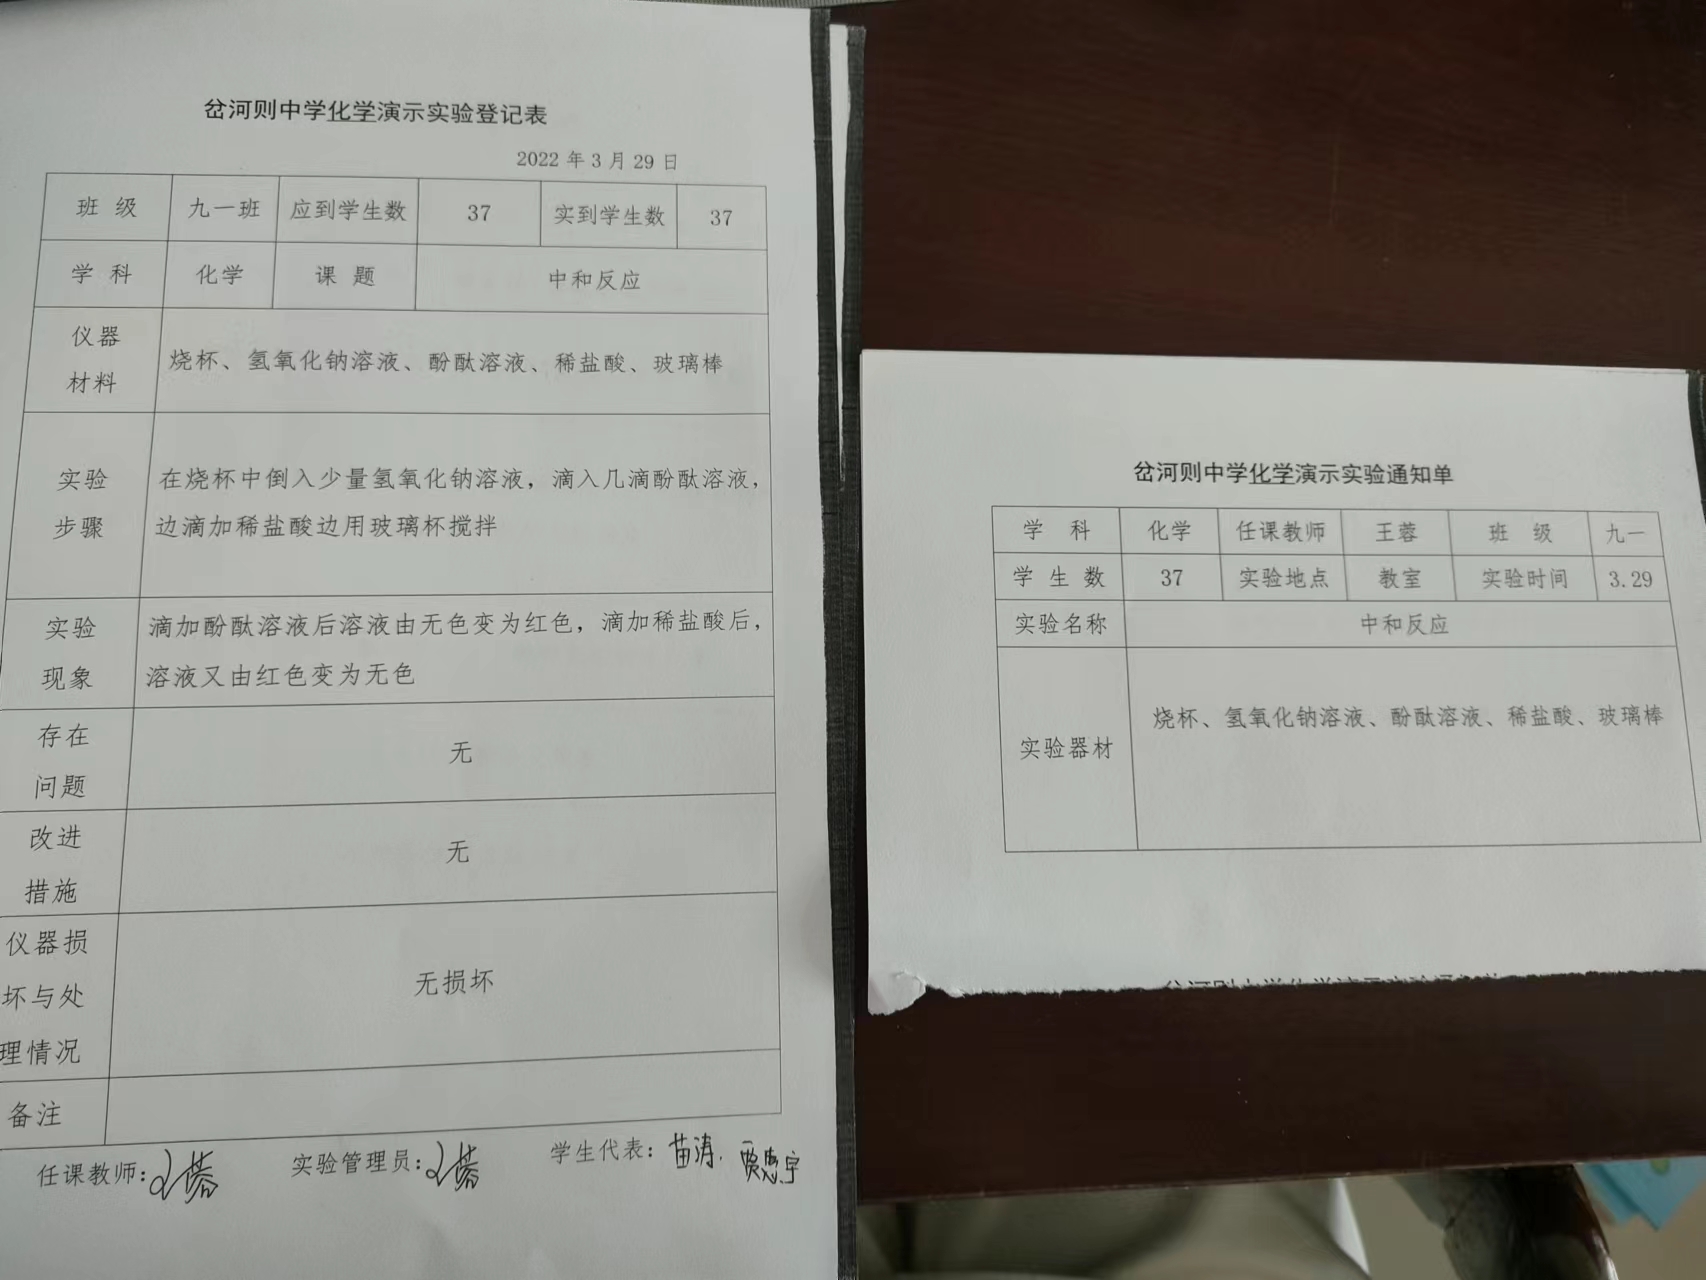 岔河则中学化学演示实验登记表
2022 年 3 月 29 日
班 级 九一班 应到学生数 37 实到学生数 37
学 科 化学 课 题 中和反应
仪器
材料
烧杯、氢氧化钠溶液、酚酞溶液、稀盐酸、玻璃棒
实验
步骤
在烧杯中倒入少量氢氧化钠溶液，滴入几滴酚酞溶液，
边滴加稀盐酸边用玻璃杯搅拌
实验
现象
滴加酚酞溶液后溶液由无色变为红色，滴加稀盐酸后，
溶液又由红色变为无色
存在
问题
无
改进
措施
无
仪器损
坏与处
理情况
无损坏
备注
任课教师：王蓉 实验管理员：王蓉 学生代表：苗涛. 贾惠宇
岔河则中学化学演示实验通知单
学 科 化学 任课教师 王蓉 班 级 九一
学 生 数 37 实验地点 教室 实验时间 3.29
实验名称 中和反应
实验器材
烧杯、氢氧化钠溶液、酚酞溶液、稀盐酸、玻璃棒